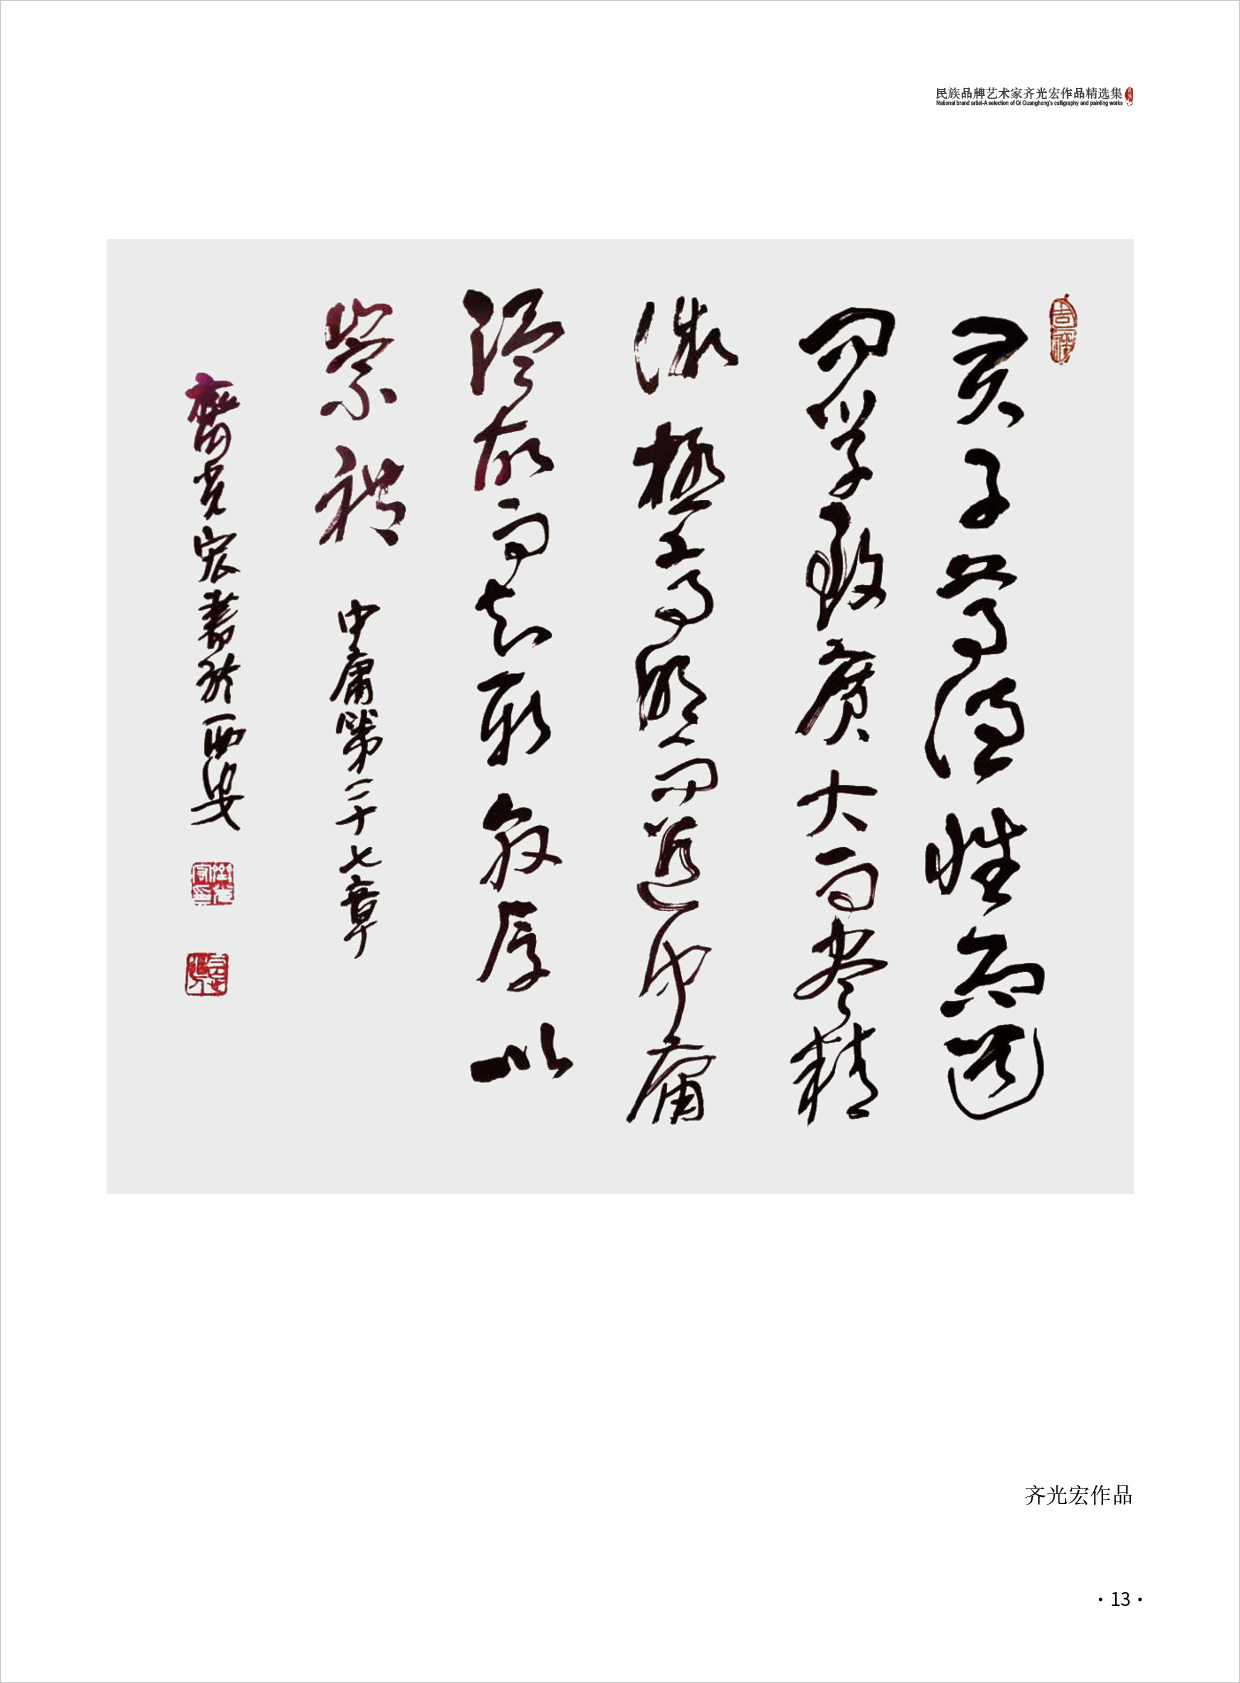 民族品牌艺术家齐光宏作品精选集
National brand artist-A selection of Qi Guanghong's calligraphy and painting works
吉祥
君子尊德性而道
問學致廣大而盡精
微極高明而道中庸
温故而知新敦厚以
崇禮 中庸第二十七章
齊光宏書於西安
齐光宏作品
·13·